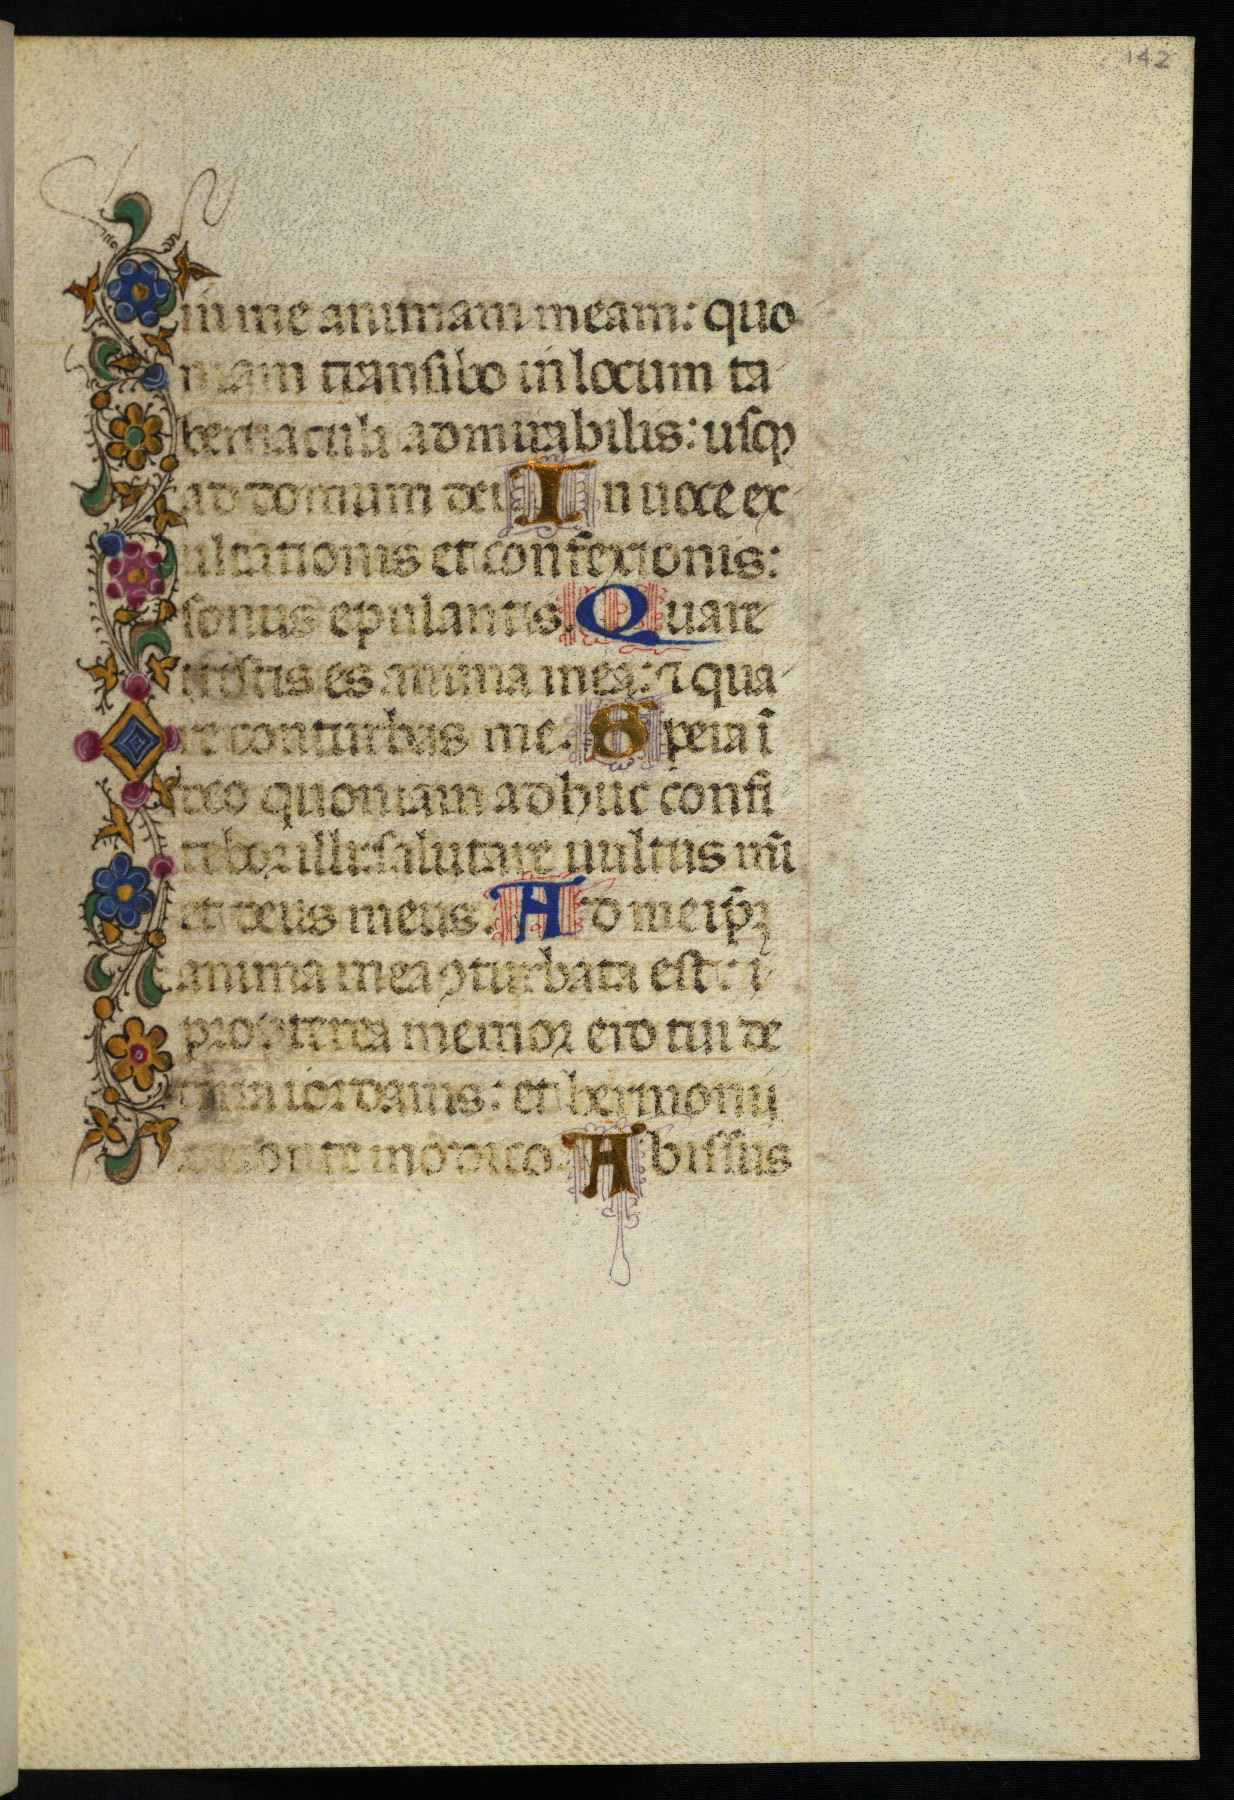 142
in me animam meam: quo
niam transibo in locum ta
bernaculi admirabilis: usqꝫ
ad domum dei In uoce ex
ultationis et confexionis:
sonus epulantis. Quare
tristis es anima mea: ⁊ qua
re conturbas me. Spera ī
deo quoniam adhuc confi
tebor illi: salutare uultus mi
et deus meus. Ad meip̄ꝫ
anima mea ꝯturbata est: i
propterea memor ero tui de
terra iordanis: et hermonij
a monte modico. Abissus